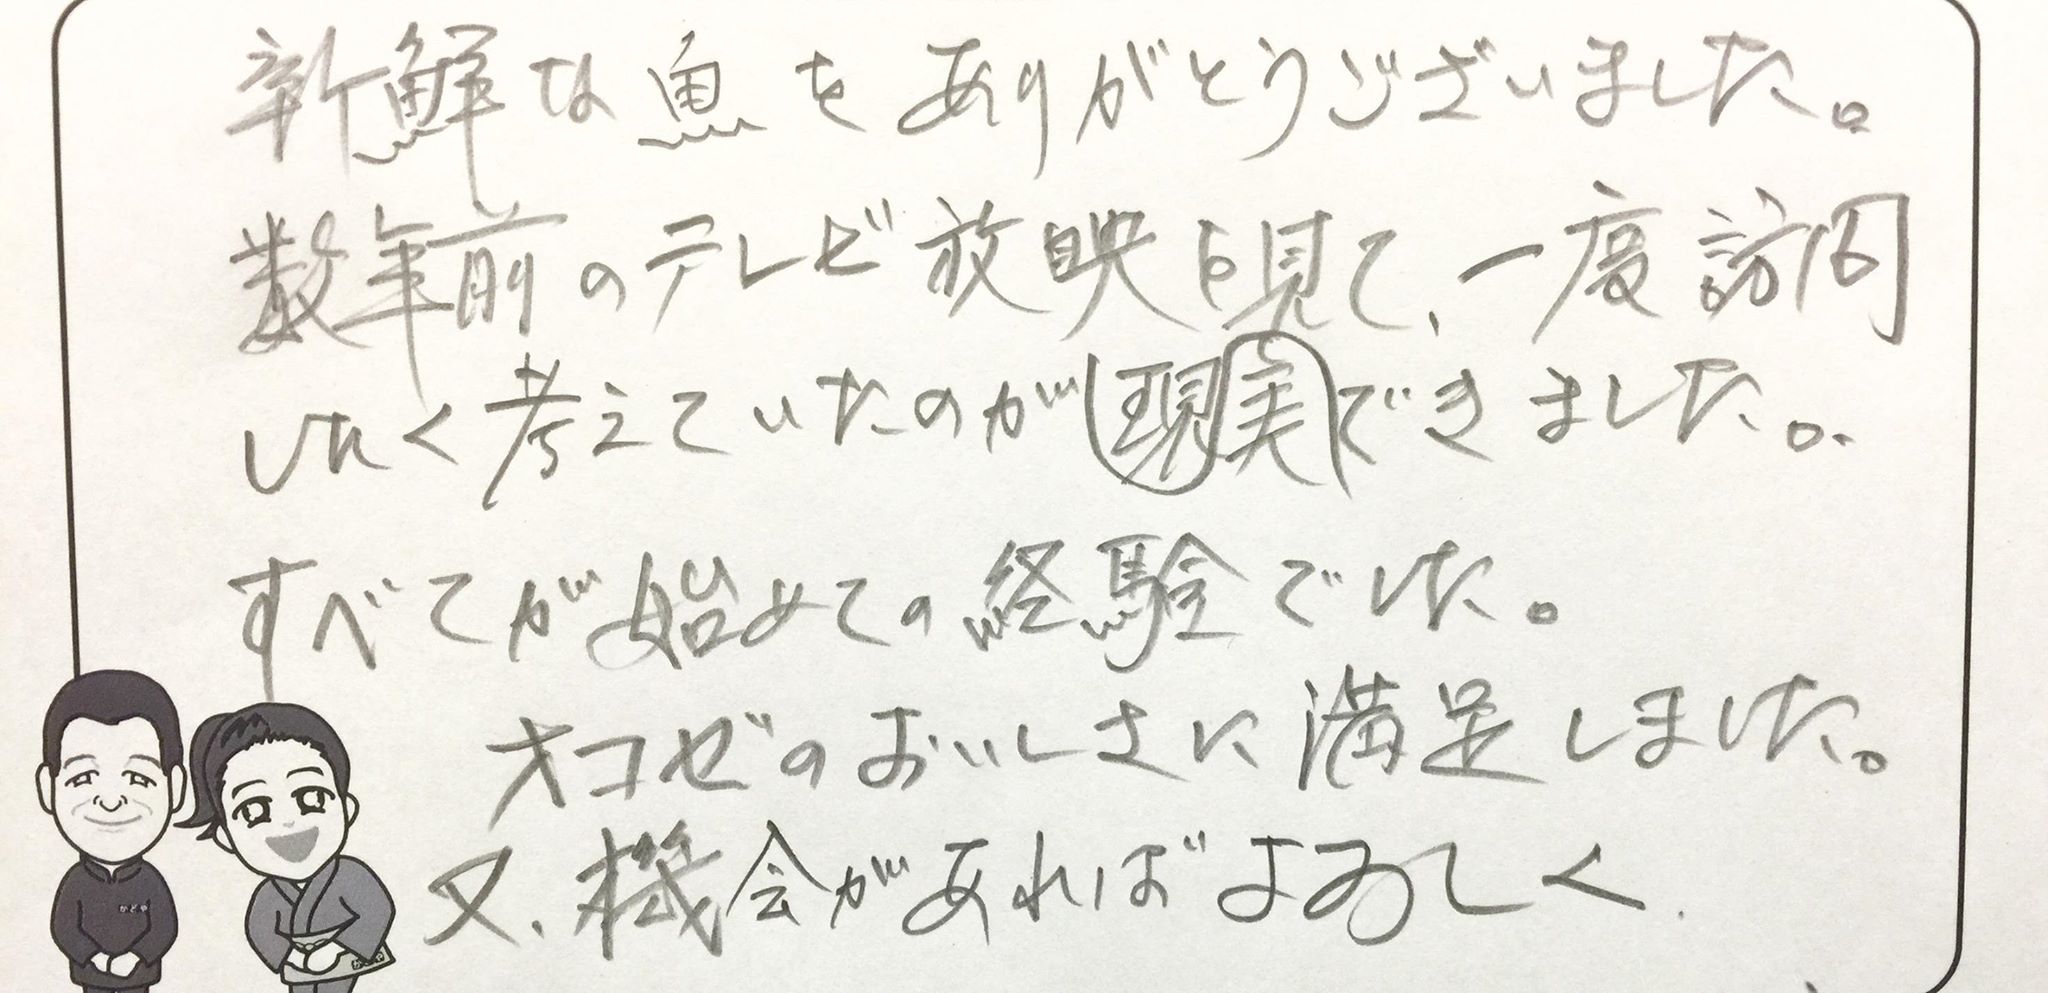 新鮮な魚をありがとうございました。
数年前のテレビ放映を見て、一度訪問
したく考えていたのが実現できました。
すべてが始めての経験でした。
オコゼのおいしさに満足しました。
又、機会があればよろしく
かどや
かどや